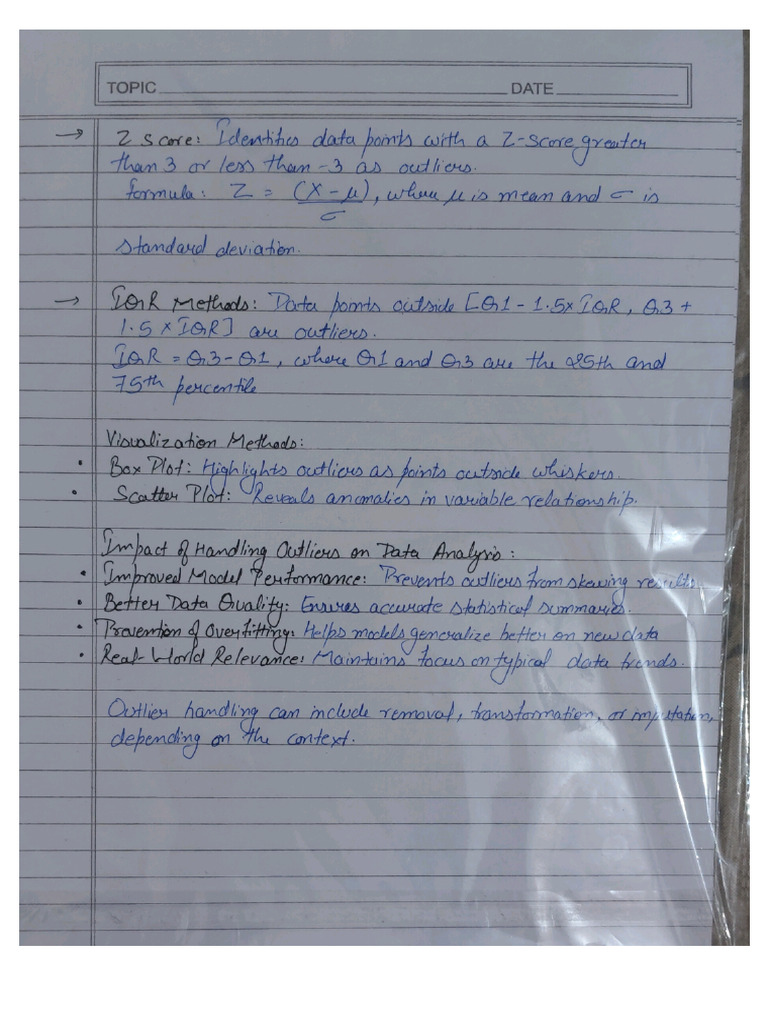 TOPIC DATE
→ Z score: Identifies data points with a Z-score greater
than 3 or less than -3 as outliers.
formula: Z = (X - μ), where μ is mean and σ is
σ
standard deviation.
→ IQR Methods: Data points outside [Q1 - 1.5 x IQR, Q3 +
1.5 x IQR] are outliers.
IQR = Q3 - Q1, where Q1 and Q3 are the 25th and
75th percentile
Visualization Methods:
• Box Plot: Highlights outliers as points outside whiskers.
• Scatter Plot: Reveals anomalies in variable relationship.
Impact of Handling Outliers on Data Analysis:
• Improved Model Performance: Prevents outliers from skewing results.
• Better Data Quality: Ensures accurate statistical summaries.
• Prevention of Overfitting: Helps models generalize better on new data
• Real-World Relevance: Maintains focus on typical data trends.
Outlier handling can include removal, transformation, or imputation,
depending on the context.